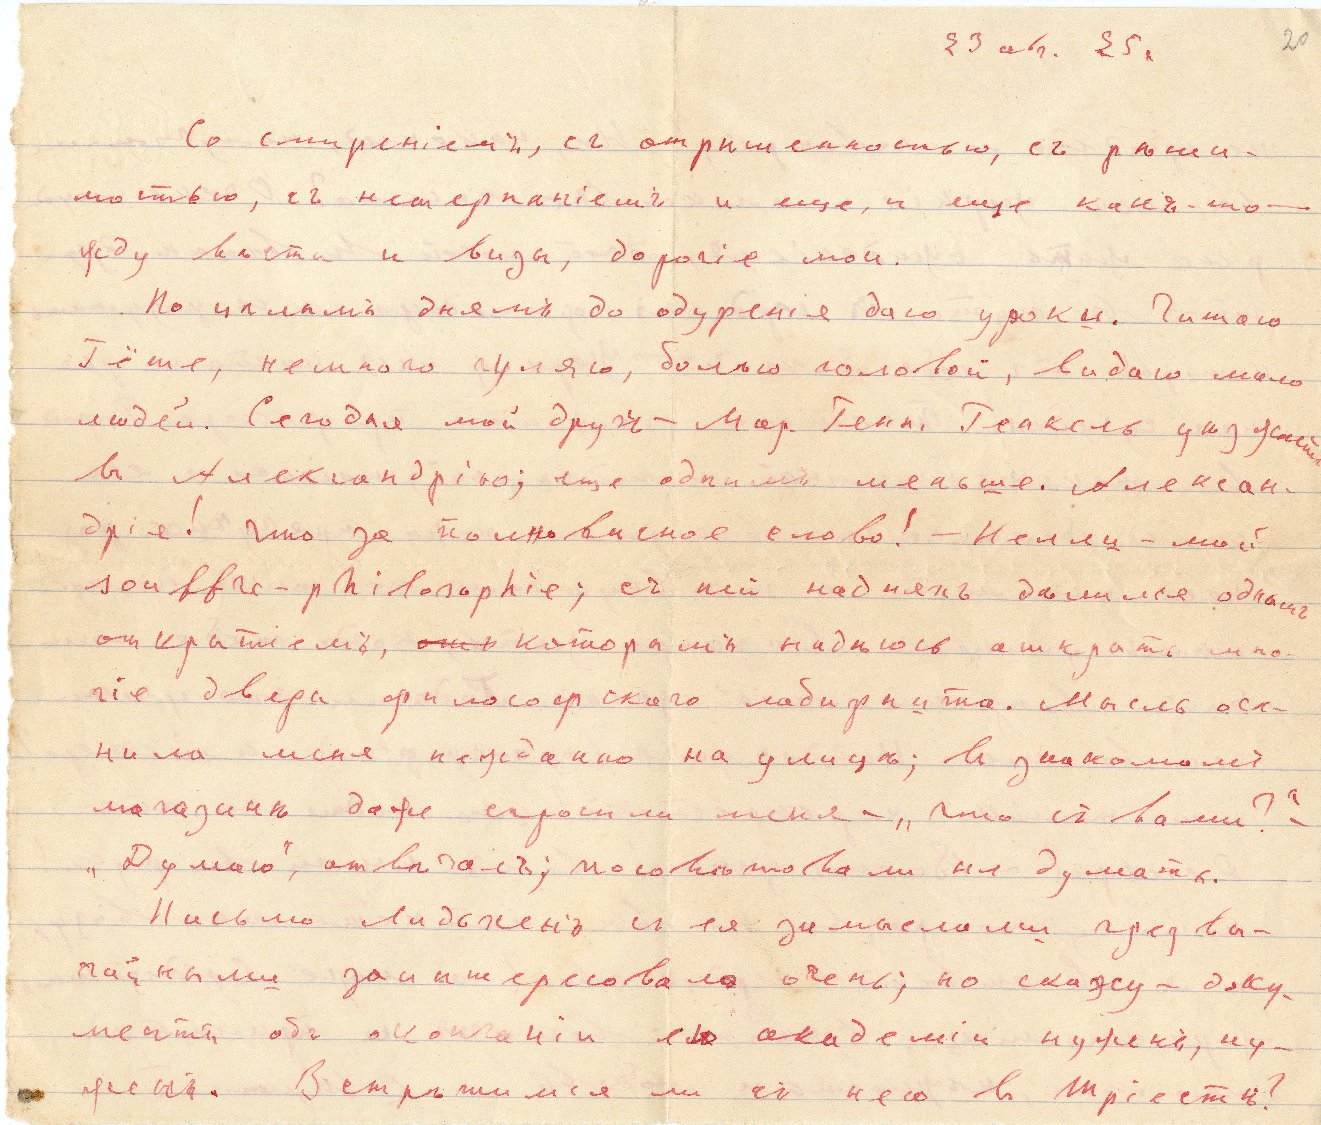 23 авг. 25 г.
20
Со смиреніемъ, съ отрѣшенностью, съ рѣши-
мостью, съ нетерпѣніемъ и еще, и еще какъ-то —
жду вѣсти и визы, дорогіе мои.
По цѣлымъ днямъ до одуренія даю уроки. Читаю
Гёте, немного гуляю, болѣю головой, видаю мало
людей. Сегодня мой другъ — Мар. Генр. Генкель уѣзжаетъ
въ Александрію; еще однимъ меньше. Алексан-
дрія! Что за полновѣсное слово! — Нелли — мой
souffre-philosophie; съ ней надняхъ дѣлился однимъ
открытіемъ, которымъ надѣюсь открыть мно-
гія двери философскаго лабиринта. Мысль осѣ-
нила меня нежданно на улицѣ; въ знакомомъ
магазинѣ даже спросили меня — „что съ вами?“ —
„Думаю“, отвѣчалъ; посовѣтовали не думать.
Письмо Лидочкинъ съ ея замыслами чрезвы-
чайными заинтересовало очень; но скажу — доку-
ментъ объ окончаніи ею академіи нуженъ, ну-
женъ. Встрѣтимся ли съ нею въ Тріестѣ?